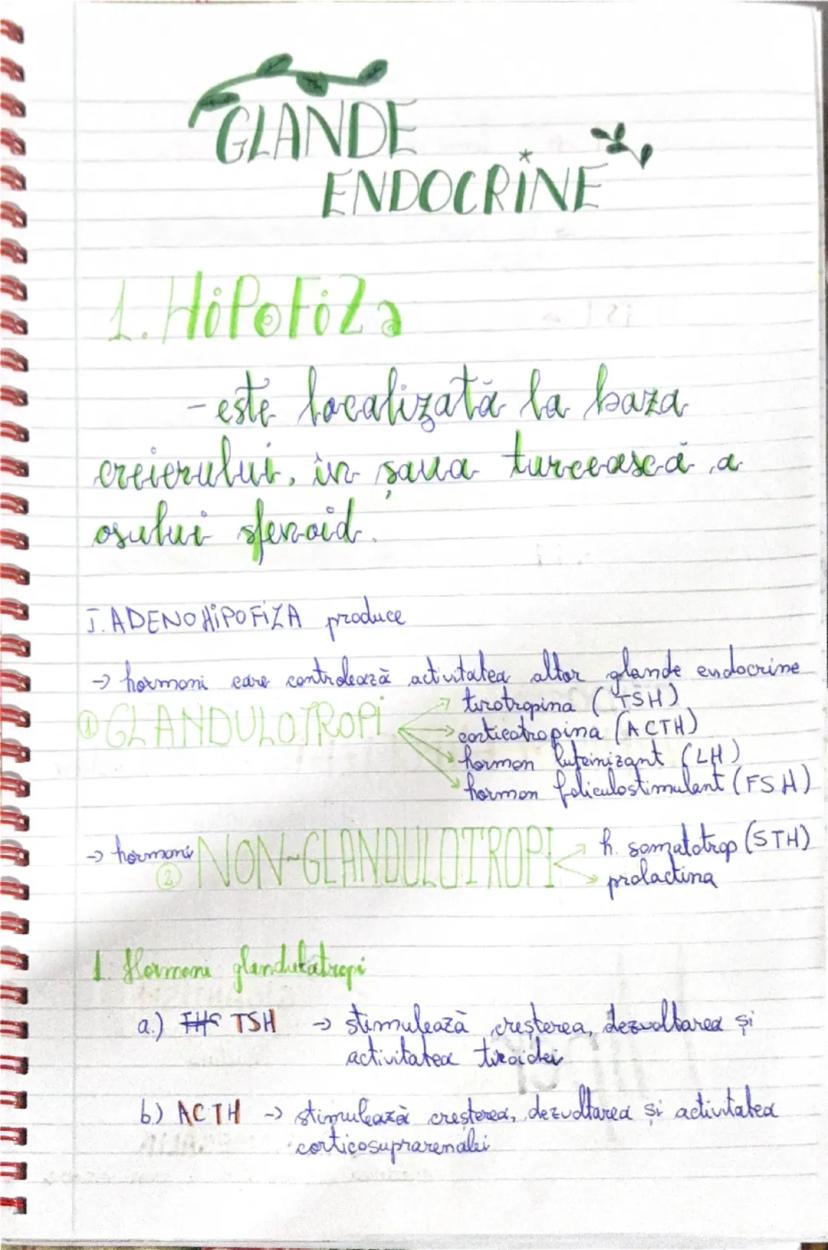 GLANDE
ENDOCRINE
1. HiPOFiZa
- este localizată la baza
creierului, în șaua turcească a
osului sfenoid.
I. ADENOHiPOFiZA produce
→ hormoni care controlează activitatea altor glande endocrine
① GLANDULOTROPi
tirotropina (TSH)
corticotropina (ACTH)
hormon luteinizant (LH)
hormon foliculostimulant (FSH)
→ hormoni ② NON-GLANDULOTROPI
h. somatotrop (STH)
prolactina
1. Hormoni glandulotropi
a.) TSH → stimulează creșterea, dezvoltarea și
activitatea tiroidei
b.) ACTH → stimulează creșterea, dezvoltarea și activitatea
corticosuprarenalei